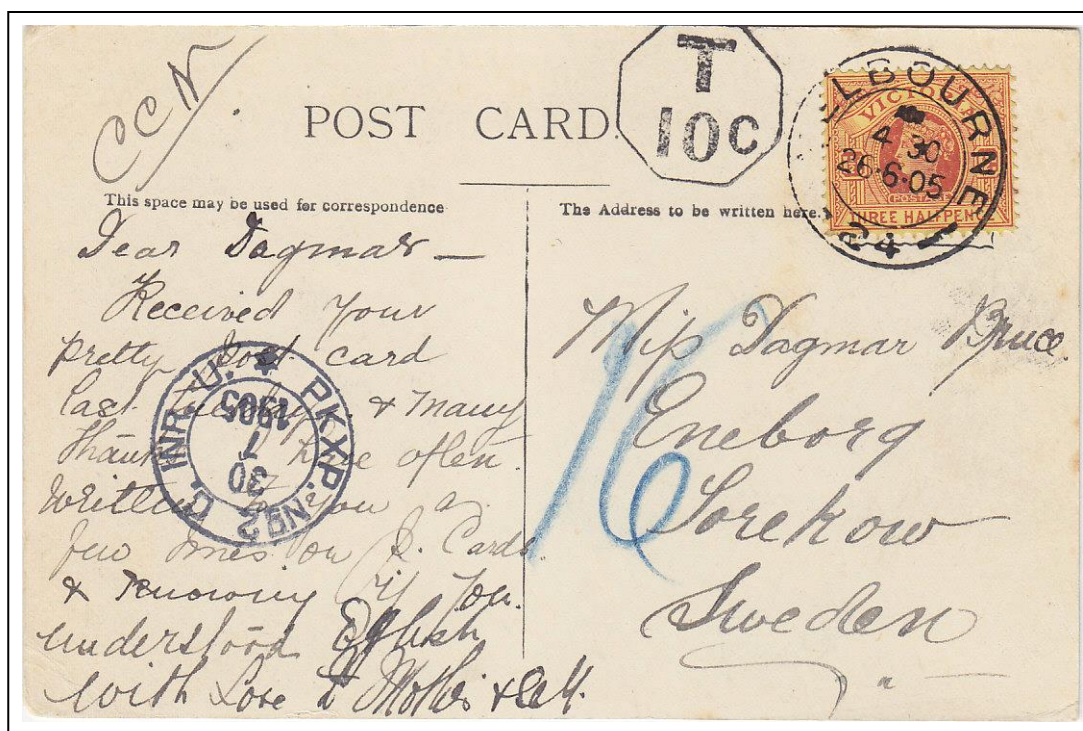 CCN
T
10C
POST CARD.
MELBOURNE
4 30
26·6·05
24
VICTORIA
POSTAGE
THREE HALFPENCE
This space may be used for correspondence
The Address to be written here.
Dear Dagmar —
Received your
pretty Post card
last & many
Thanks have often
written to you a
few times on P. Cards
& Knowing if you
understood English
with Love to Mother & all.
Miss Dagmar Bruce
Eneborg
Sweden
16
PKXP. No 2 C. INR. U.
30
7
1905